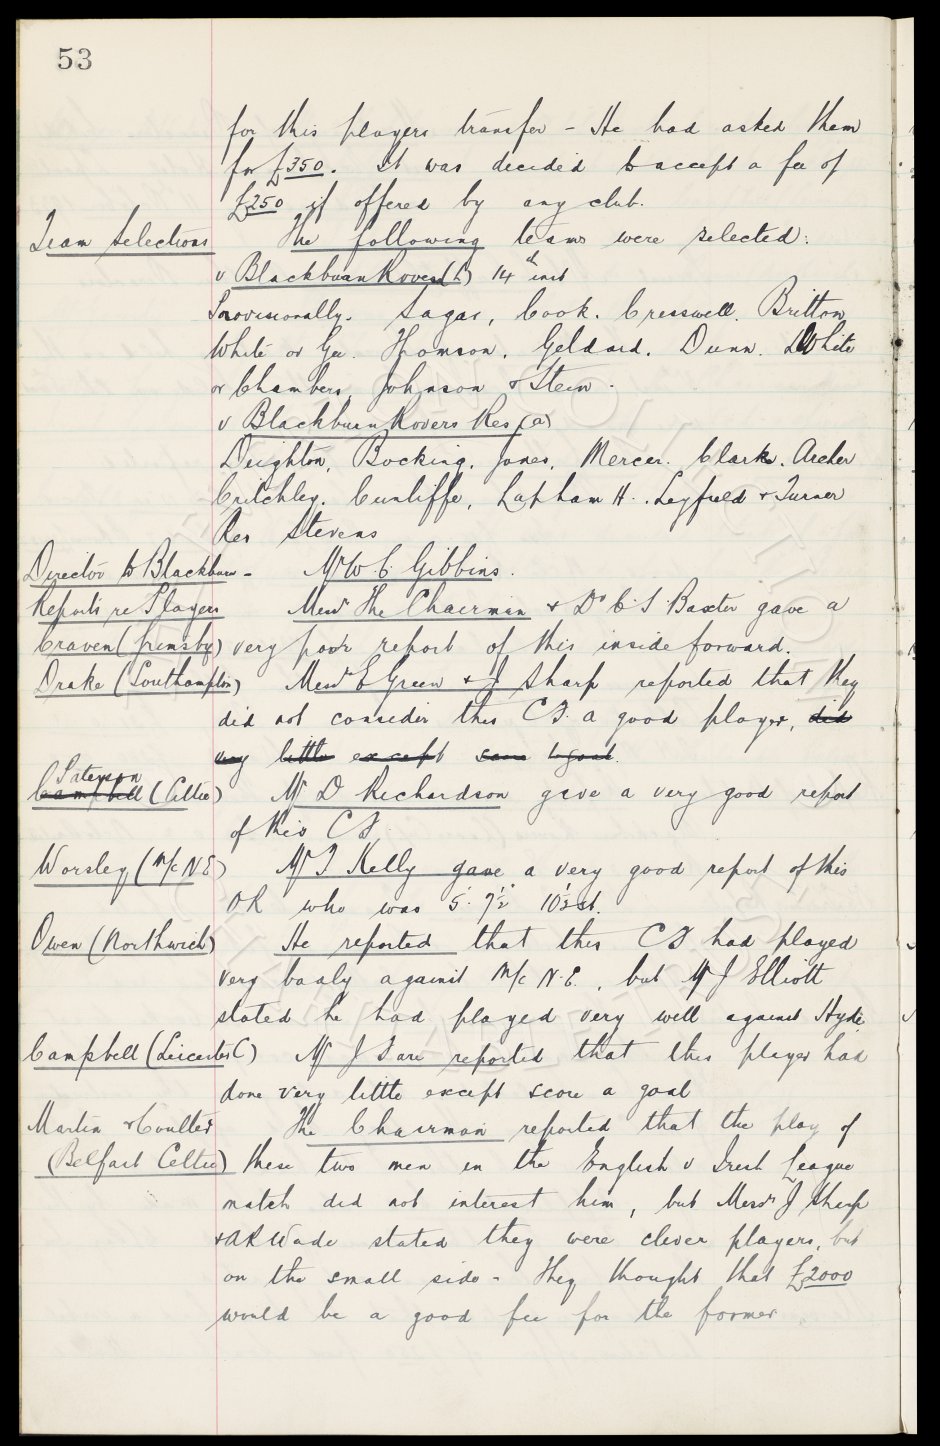 53
for this players transfer - He had asked them
for £350. It was decided to accept a fee of
£250 if offered by any club.
Team Selections The following teams were selected:
v Blackburn Rovers (h) 14th inst
Provisionally. Sagar, Cook. Cresswell. Britton
White or Gee. Thomson. Geldard. Dunn. D White
or Chambers, Johnson & Stein.
v Blackburn Rovers Res (a)
Deighton, Bocking. Jones, Mercer. Clark. Archer
Critchley. Cunliffe, Lapham H. Leyfield & Turner
Res Stevens
Director to Blackburn - Mr W C Gibbins.
Reports re Players Messrs The Chairman & Dr C S Baxter gave a
Craven (Grimsby) very poor report of this inside forward.
Drake (Southampton) Messrs E Green & J Sharp reported that they
did not consider this C F. a good player, did
very little except score 1 goal.
Paterson
Campbell (Celtic) Mr D Richardson gave a very good report
of this C F.
Worsley (M/c N E) Mr T Kelly gave a very good report of this
OR who was 5' 7½" 10½ st.
Owen (Northwich) He reported that this C F had played
very badly against M/c N.E., but Mr J Elliott
stated he had played very well against Hyde.
Campbell (Leicester C) Mr J Fare reported that this player had
done very little except score a goal
Martin & Coulter The Chairman reported that the play of
(Belfast Celtic) these two men in the English v Irish League
match did not interest him, but Messrs J Sharp
& A R Wade stated they were clever players, but
on the small side - They thought that £2000
would be a good fee for the former.